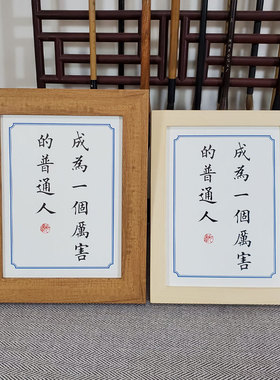 成為一個厲害
的普通人
成為一個厲害
的普通人